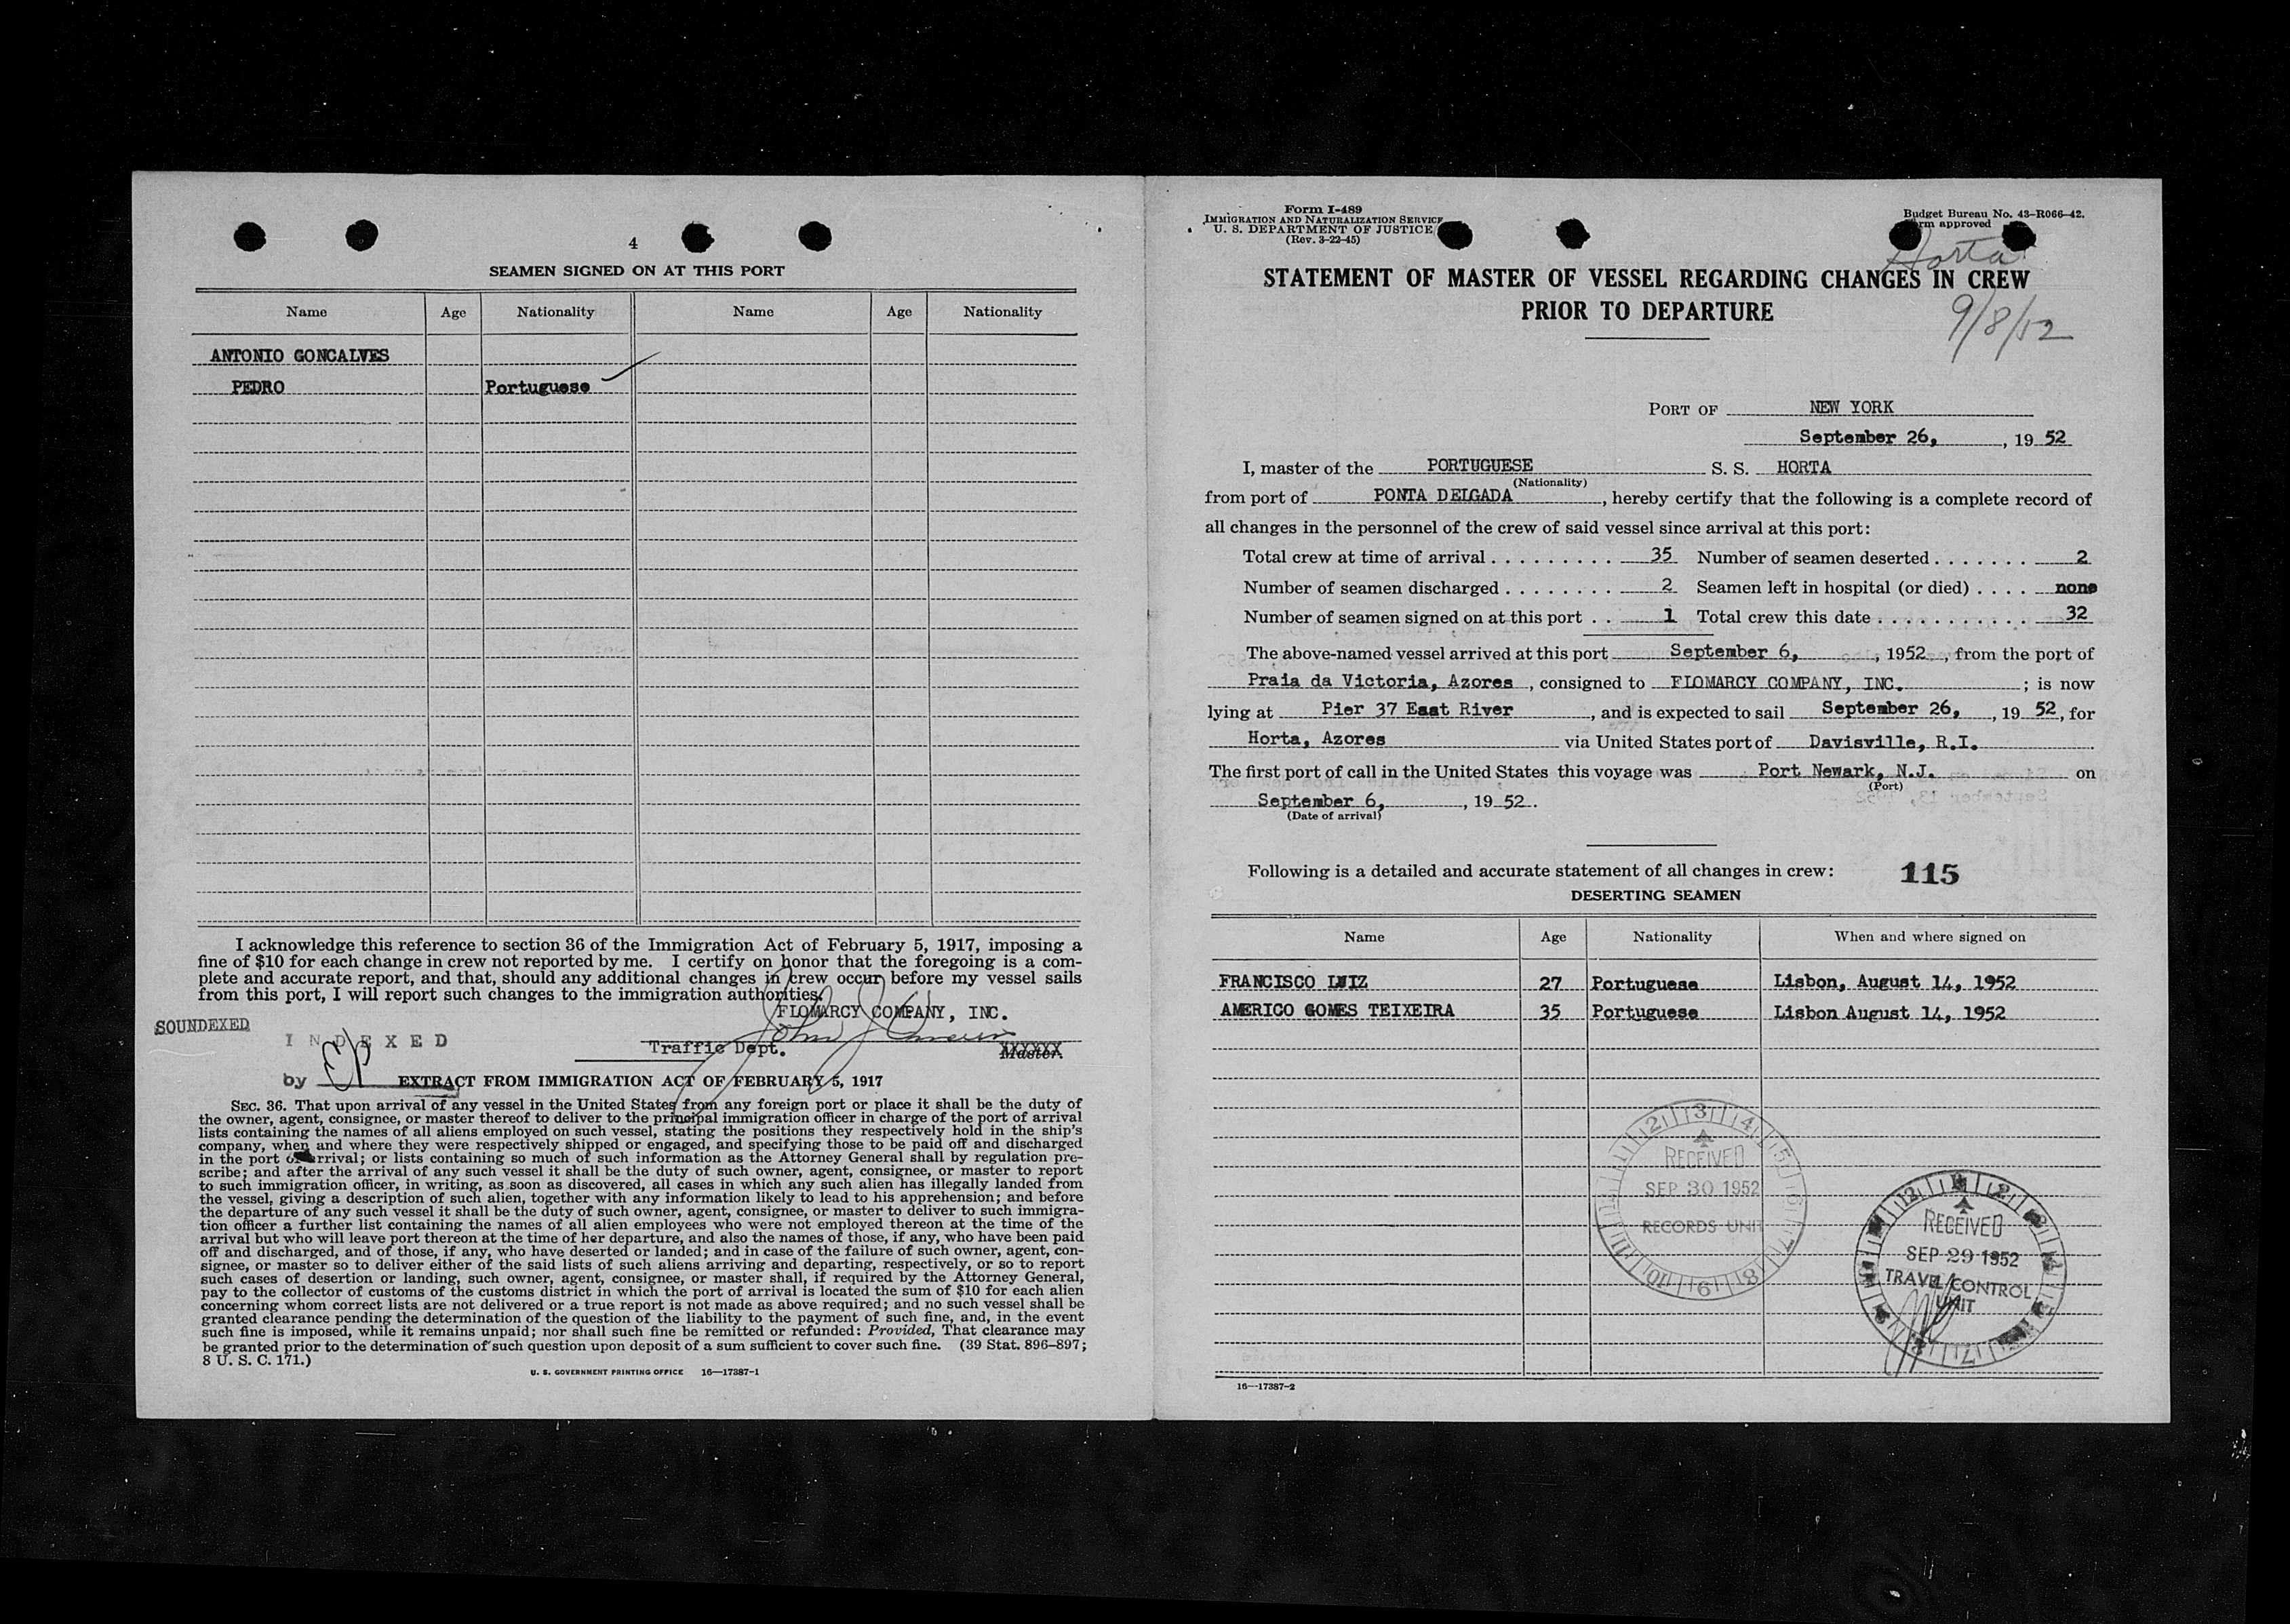 4
SEAMEN SIGNED ON AT THIS PORT
Name Age Nationality Name Age Nationality
ANTONIO GONCALVES
PEDRO Portuguese
I acknowledge this reference to section 36 of the Immigration Act of February 5, 1917, imposing a
fine of $10 for each change in crew not reported by me. I certify on honor that the foregoing is a com-
plete and accurate report, and that, should any additional changes in crew occur before my vessel sails
from this port, I will report such changes to the immigration authorities.
FLOMARCY COMPANY, INC.
SOUNDEXED
INDEXED
Traffic Dept. Master.
by
EXTRACT FROM IMMIGRATION ACT OF FEBRUARY 5, 1917
SEC. 36. That upon arrival of any vessel in the United States from any foreign port or place it shall be the duty of
the owner, agent, consignee, or master thereof to deliver to the principal immigration officer in charge of the port of arrival
lists containing the names of all aliens employed on such vessel, stating the positions they respectively hold in the ship's
company, when and where they were respectively shipped or engaged, and specifying those to be paid off and discharged
in the port of arrival; or lists containing so much of such information as the Attorney General shall by regulation pre-
scribe; and after the arrival of any such vessel it shall be the duty of such owner, agent, consignee, or master to report
to such immigration officer, in writing, as soon as discovered, all cases in which any such alien has illegally landed from
the vessel, giving a description of such alien, together with any information likely to lead to his apprehension; and before
the departure of any such vessel it shall be the duty of such owner, agent, consignee, or master to deliver to such immigra-
tion officer a further list containing the names of all alien employees who were not employed thereon at the time of the
arrival but who will leave port thereon at the time of her departure, and also the names of those, if any, who have been paid
off and discharged, and of those, if any, who have deserted or landed; and in case of the failure of such owner, agent, con-
signee, or master so to deliver either of the said lists of such aliens arriving and departing, respectively, or so to report
such cases of desertion or landing, such owner, agent, consignee, or master shall, if required by the Attorney General,
pay to the collector of customs of the customs district in which the port of arrival is located the sum of $10 for each alien
concerning whom correct lists are not delivered or a true report is not made as above required; and no such vessel shall be
granted clearance pending the determination of the question of the liability to the payment of such fine, and, in the event
such fine is imposed, while it remains unpaid; nor shall such fine be remitted or refunded: Provided, That clearance may
be granted prior to the determination of such question upon deposit of a sum sufficient to cover such fine. (39 Stat. 896–897;
8 U. S. C. 171.)
U. S. GOVERNMENT PRINTING OFFICE 16—17387-1
Form I-489
IMMIGRATION AND NATURALIZATION SERVICE
U. S. DEPARTMENT OF JUSTICE
(Rev. 3-22-45)
Budget Bureau No. 43-R066-42.
approved
Horta
STATEMENT OF MASTER OF VESSEL REGARDING CHANGES IN CREW
PRIOR TO DEPARTURE
9/8/52
PORT OF NEW YORK
September 26, , 19 52
I, master of the PORTUGUESE S. S. HORTA
(Nationality)
from port of PONTA DELGADA , hereby certify that the following is a complete record of
all changes in the personnel of the crew of said vessel since arrival at this port:
Total crew at time of arrival . . . . . . . . . 35 Number of seamen deserted . . . . . . . 2
Number of seamen discharged . . . . . . . . 2 Seamen left in hospital (or died) . . . . none
Number of seamen signed on at this port . . 1 Total crew this date . . . . . . . . . . . 32
The above-named vessel arrived at this port September 6, , 1952 , from the port of
Praia da Victoria, Azores , consigned to FLOMARCY COMPANY, INC. ; is now
lying at Pier 37 East River , and is expected to sail September 26, , 19 52, for
Horta, Azores via United States port of Davisville, R.I.
The first port of call in the United States this voyage was Port Newark, N.J. on
(Port)
September 6, , 19 52 .
(Date of arrival)
Following is a detailed and accurate statement of all changes in crew: 115
DESERTING SEAMEN
Name Age Nationality When and where signed on
FRANCISCO LUIZ 27 Portuguese Lisbon, August 14, 1952
AMERICO GOMES TEIXEIRA 35 Portuguese Lisbon August 14, 1952
RECEIVED
SEP 30 1952
RECORDS UNIT
RECEIVED
SEP 29 1952
TRAVEL CONTROL
UNIT
16—17387-2